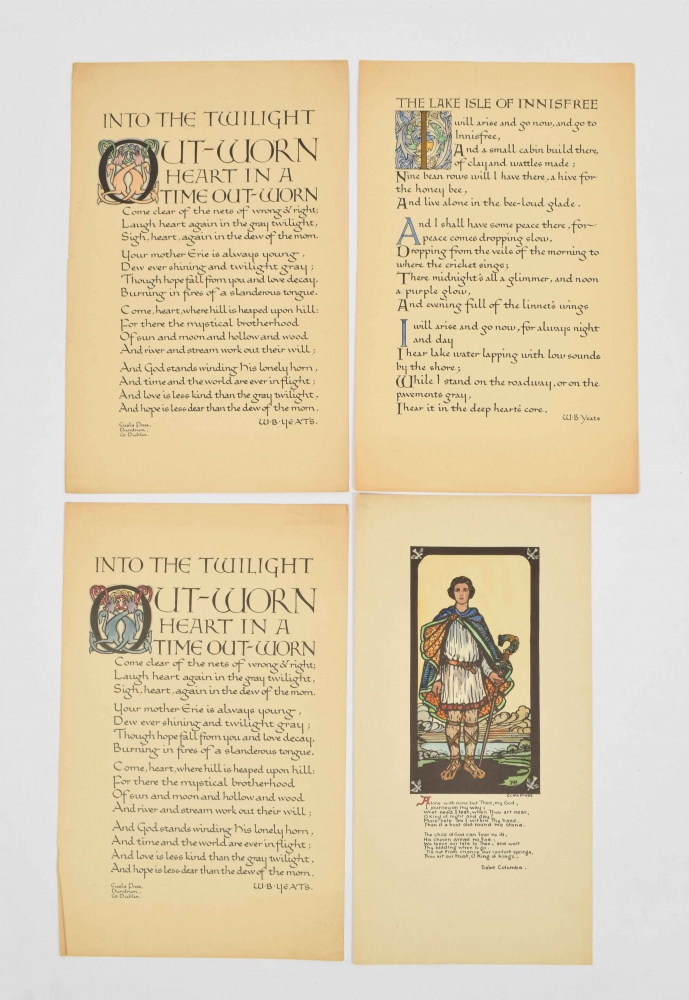 INTO THE TWILIGHT
OUT-WORN
HEART IN A
TIME OUT-WORN
Come clear of the nets of wrong & right;
Laugh heart again in the gray twilight,
Sigh, heart, again in the dew of the morn.
Your mother Eire is always young,
Dew ever shining and twilight gray;
Though hope fall from you and love decay,
Burning in fires of a slanderous tongue.
Come, heart, where hill is heaped upon hill:
For there the mystical brotherhood
Of sun and moon and hollow and wood
And river and stream work out their will;
And God stands winding his lonely horn,
And time and the world are ever in flight;
And love is less kind than the gray twilight,
And hope is less dear than the dew of the morn.
W·B·YEATS.
Cuala Press,
Dundrum,
Co Dublin.
THE LAKE ISLE OF INNISFREE
I will arise and go now, and go to
Innisfree,
And a small cabin build there,
of clay and wattles made;
Nine bean rows will I have there, a hive for
the honey bee,
And live alone in the bee-loud glade.
And I shall have some peace there, for
peace comes dropping slow,
Dropping from the veils of the morning to
where the cricket sings;
There midnight's all a glimmer, and noon
a purple glow,
And evening full of the linnet's wings
I will arise and go now, for always night
and day
I hear lake water lapping with low sounds
by the shore;
While I stand on the roadway, or on the
pavements gray,
I hear it in the deep heart's core.
W·B Yeats
INTO THE TWILIGHT
OUT-WORN
HEART IN A
TIME OUT-WORN
Come clear of the nets of wrong & right;
Laugh heart again in the gray twilight,
Sigh, heart, again in the dew of the morn.
Your mother Eire is always young,
Dew ever shining and twilight gray;
Though hope fall from you and love decay,
Burning in fires of a slanderous tongue.
Come, heart, where hill is heaped upon hill:
For there the mystical brotherhood
Of sun and moon and hollow and wood
And river and stream work out their will;
And God stands winding his lonely horn,
And time and the world are ever in flight;
And love is less kind than the gray twilight,
And hope is less dear than the dew of the morn.
W·B·YEATS.
Cuala Press,
Dundrum,
Co Dublin.
CUALA PRESS
Alone with none but Thee, my God,
I journey on my way;
What need I fear, when Thou art near,
O King of night and day?
More safe am I within Thy hand,
Than if a host did round me stand.
The child of God can fear no ill,
His chosen dread no foe;
We leave our fate to Thee, and wait
Thy bidding when to go
'Tis not from chance our comfort springs,
Thou art our trust, O King of kings.
Saint Columba.